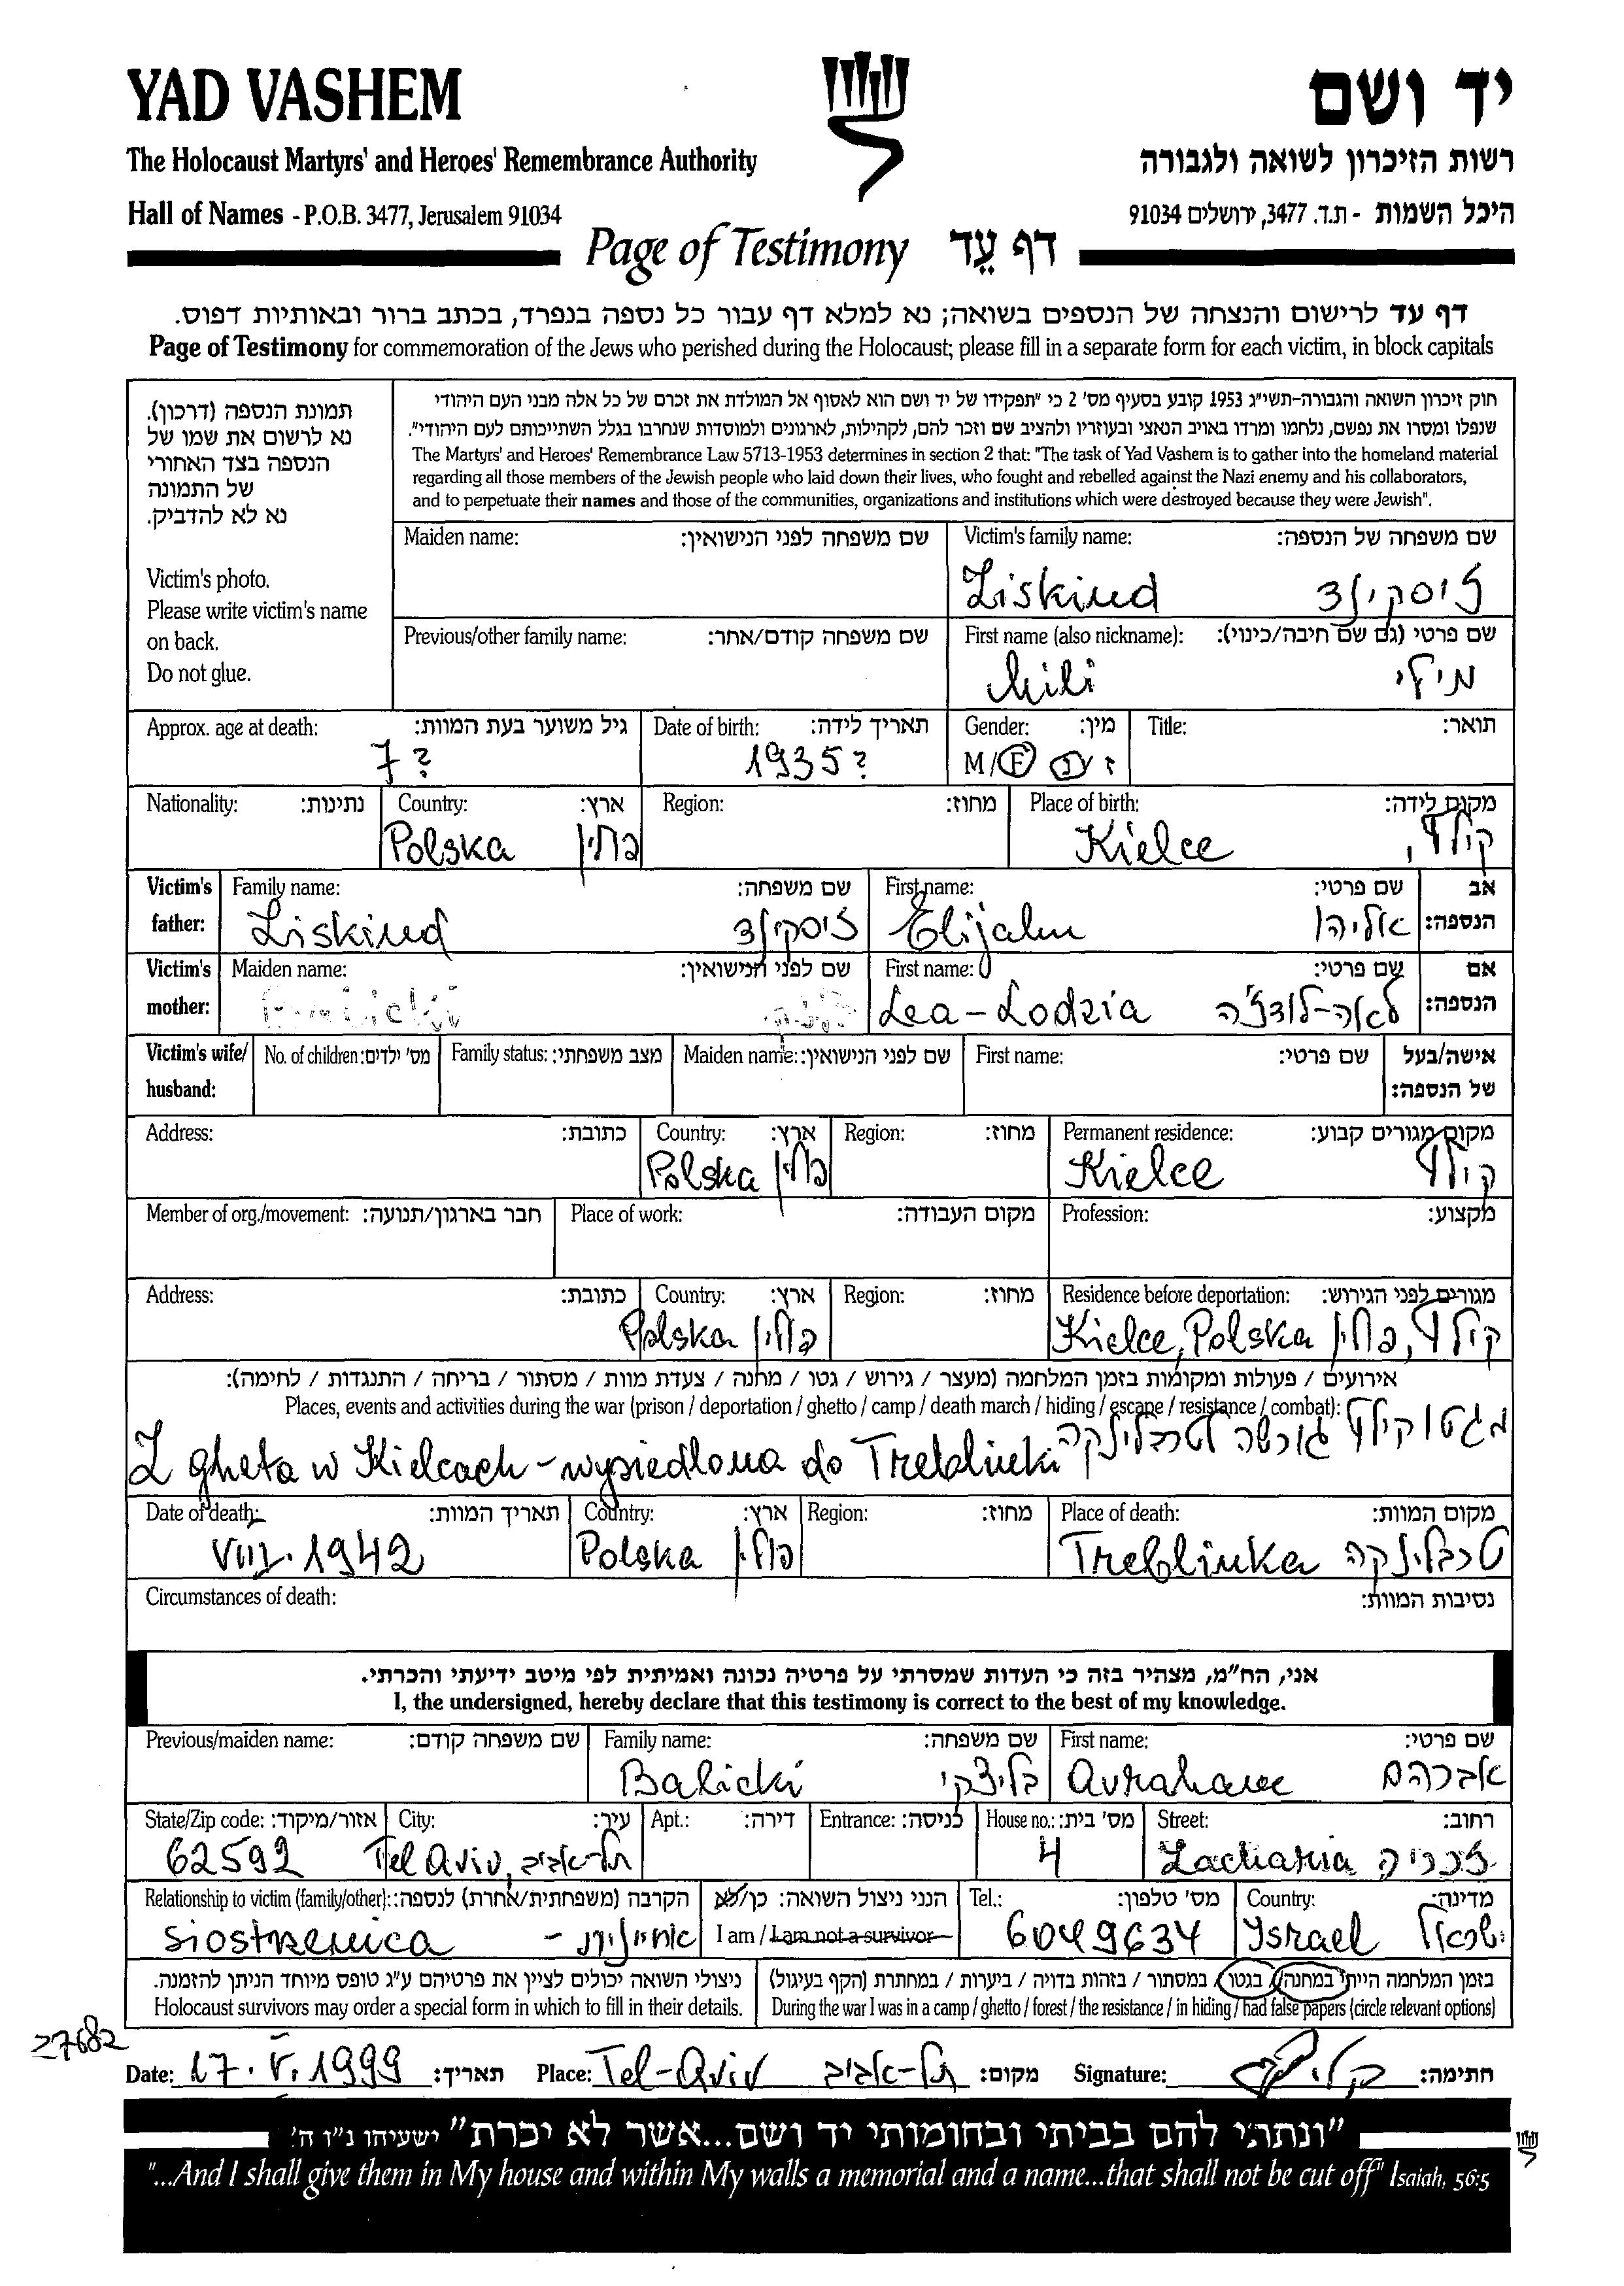 YAD VASHEM
יד ושם
The Holocaust Martyrs' and Heroes' Remembrance Authority
רשות הזיכרון לשואה ולגבורה
Hall of Names - P.O.B. 3477, Jerusalem 91034
היכל השמות - ת.ד. 3477, ירושלים 91034
Page of Testimony דף עֵד
דף עד לרישום והנצחה של הנספים בשואה; נא למלא דף עבור כל נספה בנפרד, בכתב ברור ובאותיות דפוס.
Page of Testimony for commemoration of the Jews who perished during the Holocaust; please fill in a separate form for each victim, in block capitals
תמונת הנספה (דרכון).
נא לרשום את שמו של
הנספה בצד האחורי
של התמונה
נא לא להדביק.
Victim's photo.
Please write victim's name
on back.
Do not glue.
חוק זיכרון השואה והגבורה-תשי"ג 1953 קובע בסעיף מס' 2 כי "תפקידו של יד ושם הוא לאסוף אל המולדת את זכרם של כל אלה מבני העם היהודי
שנפלו ומסרו את נפשם, נלחמו ומרדו באויב הנאצי ובעוזריו ולהציב שם וזכר להם, לקהילות, לארגונים ולמוסדות שנחרבו בגלל השתייכותם לעם היהודי".
The Martyrs' and Heroes' Remembrance Law 5713-1953 determines in section 2 that: "The task of Yad Vashem is to gather into the homeland material
regarding all those members of the Jewish people who laid down their lives, who fought and rebelled against the Nazi enemy and his collaborators,
and to perpetuate their names and those of the communities, organizations and institutions which were destroyed because they were Jewish".
Maiden name: שם משפחה לפני הנישואין: Victim's family name: שם משפחה של הנספה:
Ziskind זיסקינד
Previous/other family name: שם משפחה קודם/אחר: First name (also nickname): שם פרטי (גם שם חיבה/כינוי):
Mili מילי
Approx. age at death: גיל משוער בעת המוות: Date of birth: תאריך לידה: Gender: מין: Title: תואר:
7? 1935? M/F ז/נ
Nationality: נתינות: Country: ארץ: Region: מחוז: Place of birth: מקום לידה:
Polska פולין Kielce קילצ'ה
Victim's father: Family name: שם משפחה: First name: שם פרטי: אב הנספה:
Ziskind זיסקינד Elijahu אליהו
Victim's mother: Maiden name: שם לפני הנישואין: First name: שם פרטי: אם הנספה:
Lea-Lodzia לאה-לודז'יה
Victim's wife/ husband: No. of children: מס' ילדים: Family status: מצב משפחתי: Maiden name: שם לפני הנישואין: First name: שם פרטי: אישה/בעל של הנספה:
Address: כתובת: Country: ארץ: Region: מחוז: Permanent residence: מקום מגורים קבוע:
Polska פולין Kielce קילצ'ה
Member of org./movement: חבר בארגון/תנועה: Place of work: מקום העבודה: Profession: מקצוע:
Address: כתובת: Country: ארץ: Region: מחוז: Residence before deportation: מגורים לפני הגירוש:
Polska פולין Kielce, Polska קילצ'ה, פולין
אירועים / פעולות ומקומות בזמן המלחמה (מעצר / גירוש / גטו / מחנה / צעדת מוות / מסתור / בריחה / התנגדות / לחימה):
Places, events and activities during the war (prison / deportation / ghetto / camp / death march / hiding / escape / resistance / combat):
מגטו קילצ'ה גורשה לטרבלינקה
Z gheta w Kielcach - wysiedlona do Treblinki
Date of death: תאריך המוות: Country: ארץ: Region: מחוז: Place of death: מקום המוות:
VIII. 1942 Polska פולין Treblinka טרבלינקה
Circumstances of death: נסיבות המוות:
אני, הח"מ, מצהיר בזה כי העדות שמסרתי על פרטיה נכונה ואמיתית לפי מיטב ידיעתי והכרתי.
I, the undersigned, hereby declare that this testimony is correct to the best of my knowledge.
Previous/maiden name: שם משפחה קודם: Family name: שם משפחה: First name: שם פרטי:
Balicki בליצקי Avraham אברהם
State/Zip code: אזור/מיקוד: City: עיר: Apt.: דירה: Entrance: כניסה: House no.: מס' בית: Street: רחוב:
62592 Tel Aviv, תל-אביב 4 Zacharia זכריה
Relationship to victim (family/other): הקרבה (משפחתית/אחרת) לנספה: הנני ניצול השואה: כן/לא Tel.: מס' טלפון: Country: מדינה:
siostrzenica - אחיינית I am / I am not a survivor 6049634 Israel ישראל
ניצולי השואה יכולים לציין את פרטיהם ע"ג טופס מיוחד הניתן להזמנה. בזמן המלחמה הייתי במחנה / בגטו / במסתור / בזהות בדויה / ביערות / במחתרת (הקף בעיגול)
Holocaust survivors may order a special form in which to fill in their details. During the war I was in a camp / ghetto / forest / the resistance / in hiding / had false papers (circle relevant options)
27682
Date: 17. V. 1999 תאריך: Place: Tel-Aviv תל-אביב מקום: Signature: חתימה:
"ונתתי להם בביתי ובחומותי יד ושם...אשר לא יכרת" ישעיהו נ"ו ה'
"...And I shall give them in My house and within My walls a memorial and a name...that shall not be cut off" Isaiah, 56:5